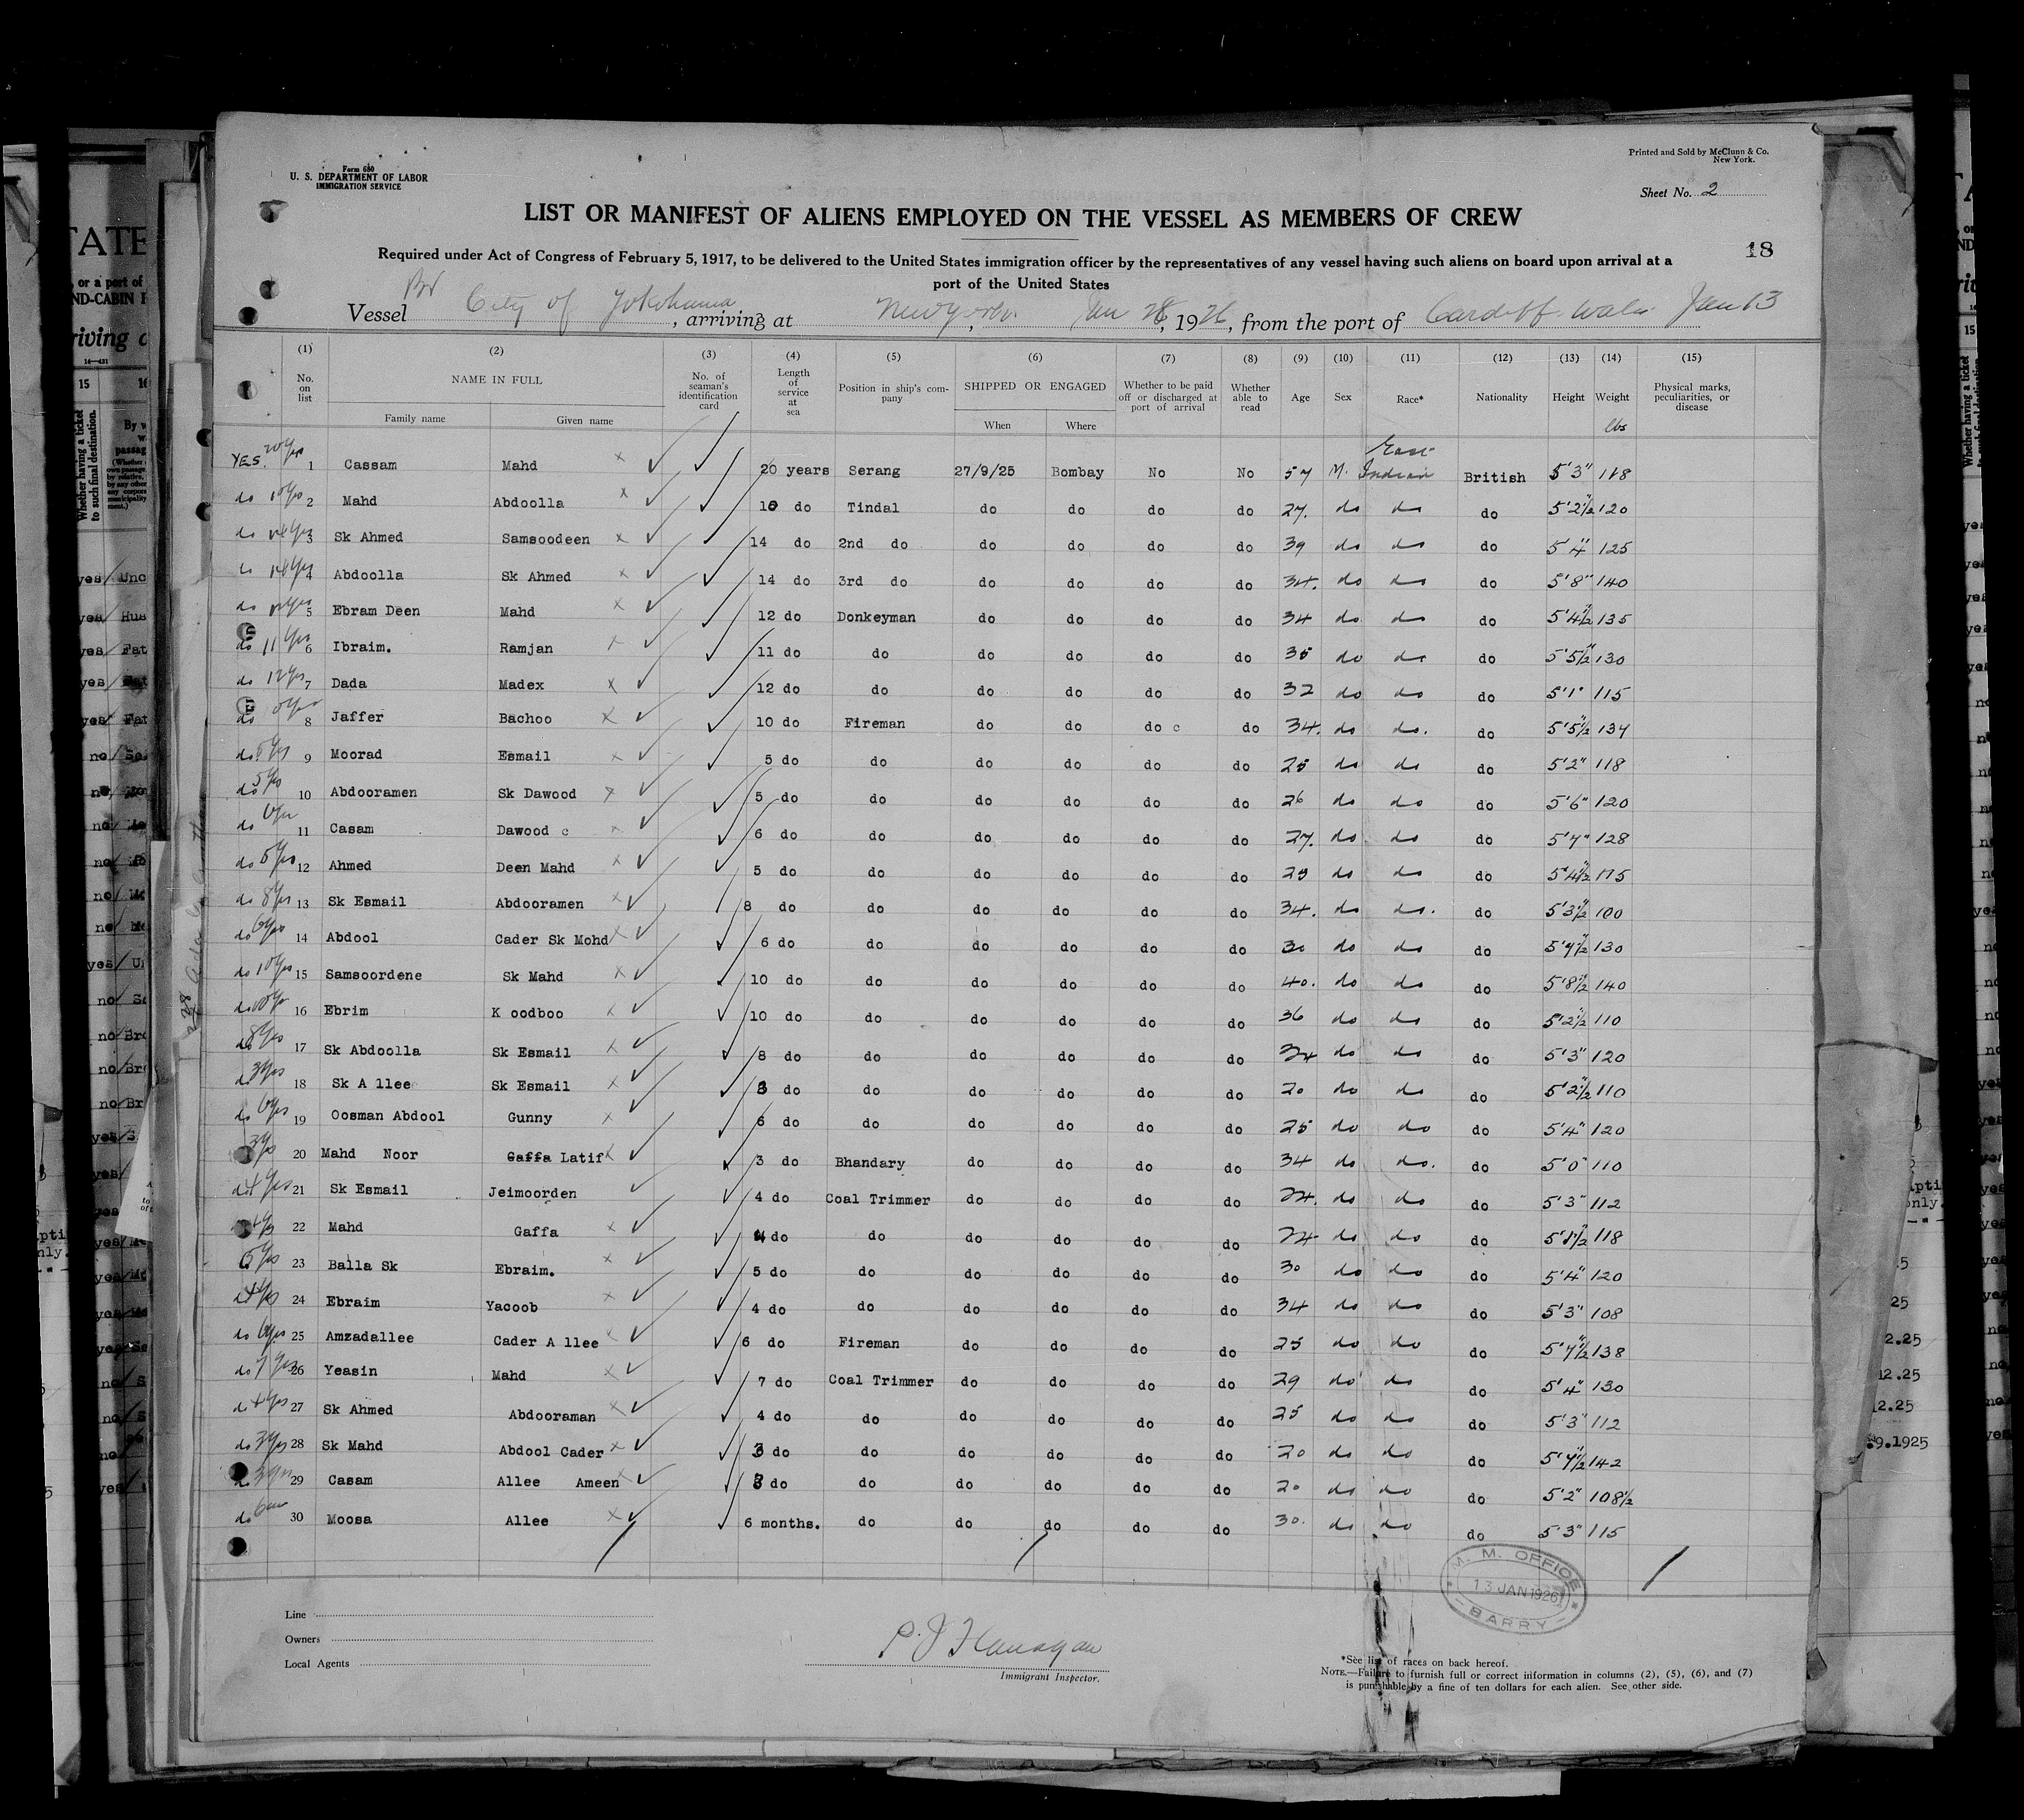 Form 680
U. S. DEPARTMENT OF LABOR
IMMIGRATION SERVICE
Printed and Sold by McClunn & Co.
New York.
Sheet No. 2
LIST OR MANIFEST OF ALIENS EMPLOYED ON THE VESSEL AS MEMBERS OF CREW
18
Required under Act of Congress of February 5, 1917, to be delivered to the United States immigration officer by the representatives of any vessel having such aliens on board upon arrival at a
port of the United States
Vessel Br City of Yokohama, arriving at New York, Jan 28, 1926, from the port of Cardiff Wales Jan 13
(1) (2) (3) (4) (5) (6) (7) (8) (9) (10) (11) (12) (13) (14) (15)
No. on list NAME IN FULL Family name Given name No. of seaman's identification card Length of service at sea Position in ship's company SHIPPED OR ENGAGED When Where Whether to be paid off or discharged at port of arrival Whether able to read Age Sex Race* Nationality Height Weight lbs Physical marks, peculiarities, or disease
YES. 20 yrs 1 Cassam Mahd x 20 years Serang 27/9/25 Bombay No No 57 M. East Indian British 5'3"
do 10 yrs 2 Mahd Abdoolla x 10 do Tindal do do do do 27. do do do 5'2½" 120
do 14 yrs 3 Sk Ahmed Samsoodeen x 14 do 2nd do do do do do 39 do do do 5'4" 125
do 14 yrs 4 Abdoolla Sk Ahmed x 14 do 3rd do do do do do 34. do do do 5'8" 140
do 12 yrs 5 Ebram Deen Mahd x 12 do Donkeyman do do do do 34 do do do 5'4½" 135
do 11 yrs 6 Ibraim. Ramjan x 11 do do do do do do 35 do do do 5'5½" 130
do 12 yrs 7 Dada Madex x 12 do do do do do do 32 do do do 5'1" 115
do 8 Jaffer Bachoo x 10 do Fireman do do do c do 34. do do. do 5'5½" 134
do 5 yrs 9 Moorad Esmail x 5 do do do do do do 25 do do do 5'2" 118
do 5 yrs 10 Abdooramen Sk Dawood x 5 do do do do do do 26 do do do 5'6" 120
do 6 yrs 11 Casam Dawood c x 6 do do do do do do 27. do do do 5'7" 128
do 5 yrs 12 Ahmed Deen Mahd x 5 do do do do do do do do do 5'4½"
do 8 yrs 13 Sk Esmail Abdooramen x 8 do do do do do do 34. do do. do 5'3½" 100
do 6 yrs 14 Abdool Cader Sk Mohd x 6 do do do do do do 30 do do do 5'7½" 130
do 10 yrs 15 Samsoordene Sk Mahd x 10 do do do do do do 40. do do do 5'8½" 140
do 10 yrs 16 Ebrim K oodboo x 10 do do do do do do 36 do do do 5'2½" 110
do 8 yrs 17 Sk Abdoolla Sk Esmail x 8 do do do do do do 34 do do do 5'3" 120
do 3 yrs 18 Sk A llee Sk Esmail x 3 do do do do do do 20 do do do 5'2½" 110
do 6 yrs 19 Oosman Abdool Gunny x 6 do do do do do do 25 do do do 5'4" 120
3 yrs 20 Mahd Noor Gaffa Latif x 3 do Bhandary do do do do 34 do do. do 5'0" 110
do 4 yrs 21 Sk Esmail Jeimoorden 4 do Coal Trimmer do do do do 24. do do do 5'3" 112
4 yrs 22 Mahd Gaffa x 4 do do do do do do 24 do do do 5'1½" 118
5 yrs 23 Balla Sk Ebraim. x 5 do do do do do do 30 do do do 5'4" 120
do 4 yrs 24 Ebraim Yacoob x 4 do do do do do do 34 do do do 5'3" 108
do 6 yrs 25 Amzadallee Cader A llee x 6 do Fireman do do do do 25 do do do 5'7½" 138
do 7 yrs 26 Yeasin Mahd x 7 do Coal Trimmer do do do do 29 do do do 5'4" 130
do 4 yrs 27 Sk Ahmed Abdooraman x 4 do do do do do do 25 do do do 5'3" 112
do 3 yrs 28 Sk Mahd Abdool Cader x 3 do do do do do do 20 do do do 5'7½" 142
do 3 yrs 29 Casam Allee Ameen x 3 do do do do do do 20 do do do 5'2" 108½
do 6 30 Moosa Allee x 6 months. do do do do do 30. do do do 5'3" 115
M. M. OFFICE
13 JAN 1926
BARRY
Line
Owners
Local Agents
P. J. Flanagan
Immigrant Inspector.
*See list of races on back hereof.
NOTE.—Failure to furnish full or correct information in columns (2), (5), (6), and (7)
is punishable by a fine of ten dollars for each alien. See other side.